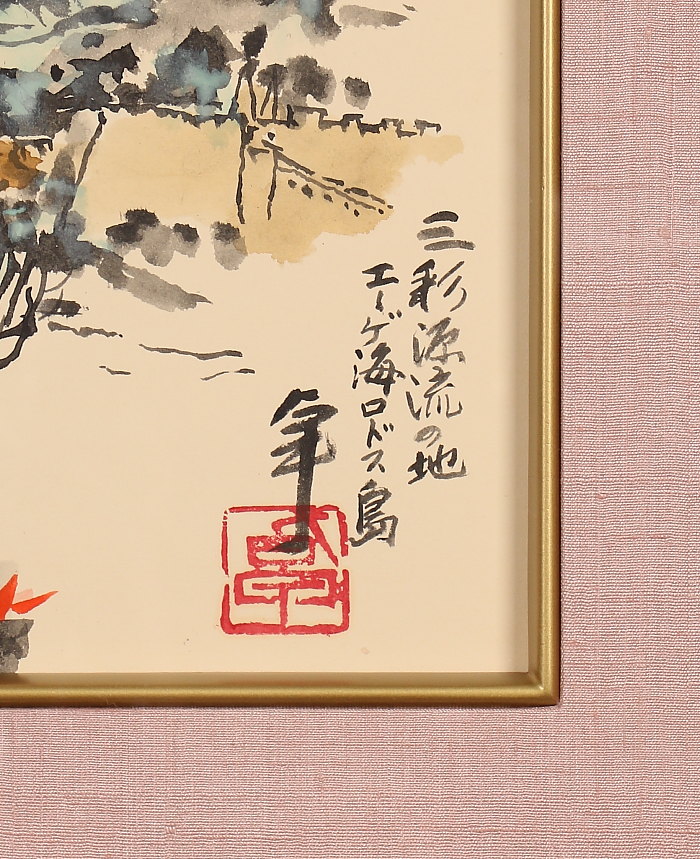 三彩源流の地
エーゲ海ロドス島